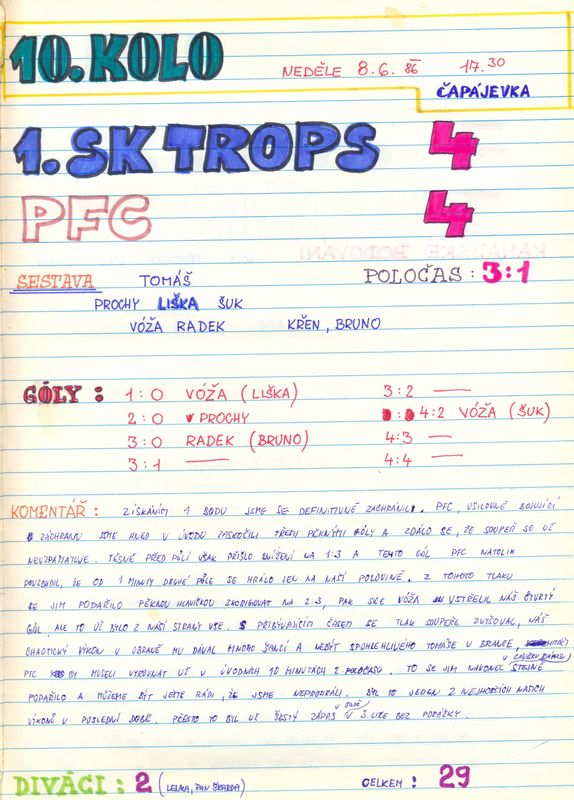 10. KOLO
NEDĚLE 8.6.86 17.30
ČAPAJEVKA
1. SK TROPS 4
PFC 4
SESTAVA TOMÁŠ POLOČAS : 3:1
PROCHY LIŠKA ŠUK
VÓŽA RADEK KŘEN, BRUNO
GÓLY : 1:0 VÓŽA (LIŠKA) 3:2 —
2:0 PROCHY 4:2 VÓŽA (ŠUK)
3:0 RADEK (BRUNO) 4:3 —
3:1 — 4:4 —
KOMENTÁŘ : ZÍSKÁNÍM 1 BODU JSME SE DEFINITIVNĚ ZACHRÁNILI. PFC, USILOVNĚ BOJUJÍCÍ
O ZÁCHRANU JSME HNED V ÚVODU ZASKOČILI TŘEMI PĚKNÝMI GÓLY A ZDÁLO SE, ŽE SOUPEŘ SE UŽ
NEVZPAMATUJE. TĚSNĚ PŘED PŮLÍ VŠAK PŘIŠLO SNÍŽENÍ NA 1:3 A TENTO GÓL PFC NATOLIK
POVZBUDIL, ŽE OD 1 MINUTY DRUHÉ PŮLE SE HRÁLO JEN NA NAŠÍ POLOVINĚ. Z TOHOTO TLAKU
SE JIM PODAŘILO PĚKNOU HLAVIČKOU ZKORIGOVAT NA 2:3, PAK SICE VÓŽA VSTŘELIL NÁŠ ČTVRTÝ
GÓL, ALE TO UŽ BYLO Z NAŠÍ STRANY VŠE. S PŘIBÝVAJÍCÍM ČASEM SE TLAK SOUPEŘE ZVYŠOVAL, NÁŠ
CHAOTICKÝ VÝKON V OBRANĚ MU DÁVAL MNOHO ŠANCÍ A NEBÝT SPOHLEHLIVÉHO TOMÁŠE V BRANCE, HRÁČI
PFC BY MUSELI VYROVNAT UŽ V ÚVODNÍCH 10 MINUTÁCH 2. POLOČASU. TO SE JIM NAKONEC STEJNĚ V ZÁVĚRU ZÁPASU
PODAŘILO A MŮŽEME BÝT JEŠTĚ RÁDI, ŽE JSME NEPROHRÁLI. BYL TO JEDEN Z NEJHORŠÍCH NAŠICH
VÝKONŮ V POSLEDNÍ DOBĚ. PŘESTO TO BYL UŽ ŠESTÝ ZÁPAS V ŘADĚ V 3. LIZE BEZ PORÁŽKY.
DIVÁCI : 2 (LENKA, PAN ŠKARDA) CELKEM : 29